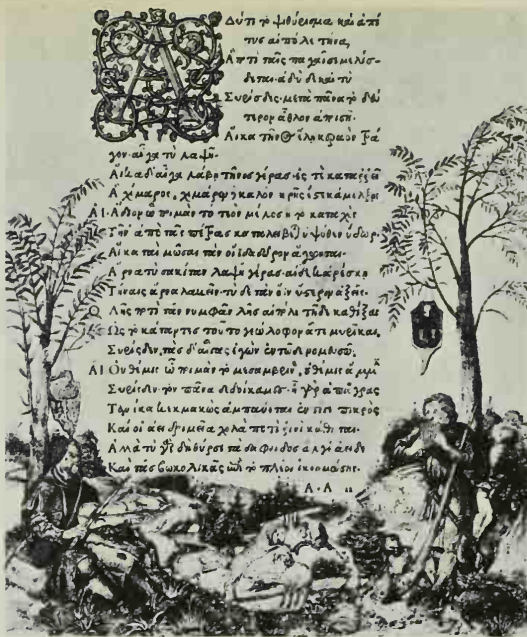 Ἁδύ τι τὸ ψιθύρισμα καὶ ἁ πί
τυς αἰπόλε τήνα,
Ἃ ποτὶ ταῖς παγαῖσι μελίσ-
δεται· ἁδὺ δὲ καὶ τὺ
Συρίσδες· μετὰ πᾶνα τὸ δεύ
τερον ἆθλον ἀποισῇ.
Αἴκα τῆνος ἕλῃ κεραὸν τρά
γον· αἶγα τὺ λαψῇ.
Αἴκα δ' αἶγα λάβῃ τῆνος γέρας· ἐς τὲ καταρρεῖ
Ἁ χίμαρος· χιμάρω δὲ καλὸν κρῆς ἔστέ κ' ἀμέλξῃς
ΑΙ. Ἅδιον ὦ ποιμὰν τὸ τεὸν μέλος ἢ τὸ καταχὲς
Τῆν' ἀπὸ τᾶς πέτρας καταλείβεται ὑψόθεν ὕδωρ.
Αἴκα ταὶ μῶσαι τὰν οἴιδα δῶρον ἄγωνται·
Ἄρνα τὺ σακίταν λαψῇ γέρας· αἰ δέ κ' ἀρέσκῃ
Τήναις ἄρνα λαβεῖν· τὺ δὲ τὰν ὄϊν ὕστερον ἀξῇς.
Θ Λῇς ποτὶ τᾶν νυμφᾶν λῇς αἰπόλε τῇδε καθίξας
Ὡς τὸ κάταντες τοῦτο γεώλοφον ᾇτε μυρῖκαι,
Συρίσδεν; τὰς δ' αἶγας ἐγὼν ἐν τῷδε νομευσῶ.
ΑΙ Οὐ θέμις ὦ ποιμὰν τὸ μεσαμβρινόν, οὐ θέμις ἄμμιν
Συρίσδεν· τὸν πᾶνα δεδοίκαμες· ἦ γὰρ ἀπ' ἄγρας
Τανίκα κεκμακὼς ἀμπαύεται ἐντί γε πικρὸς
Καί οἱ ἀεὶ δριμεῖα χολὰ ποτὶ ῥινὶ κάθηται.
Ἀλλὰ τὺ γὰρ δὴ θύρσι τὰ δάφνιδος ἄλγεα εἶδες
Καὶ τᾶς βωκολικᾶς ἐπὶ τὸ πλέον ἵκεο μώσης.
Α·Α ii